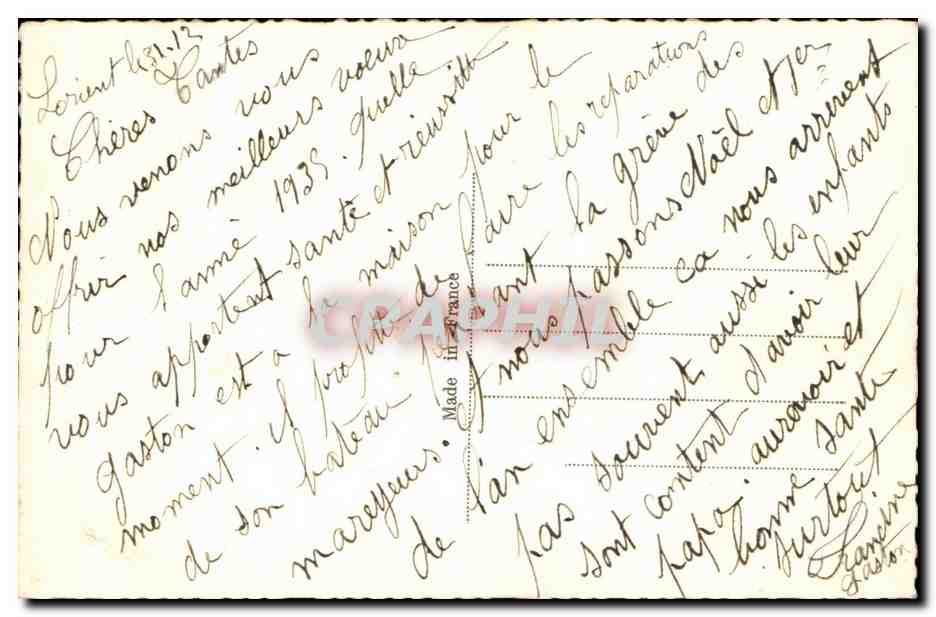 Lorient le 31-12
Chères Tantes
Nous venons vous
offrir nos meilleurs voeux
pour l'anné 1935. quelle
vous apportent santé et réeussitt
gaston est a la maison pour le
moment. il profite de faire les réparations
de son bateau pendant la grève des
mareyeurs. nous passons Noël et 1er
de l'an ensemble ca nous arrivent
pas souvent aussi les enfants
sont content d'avoir leur
papa. aurevoir et
bonne santé
surtout
Francine
gaston
Made in France
CPAPHIL